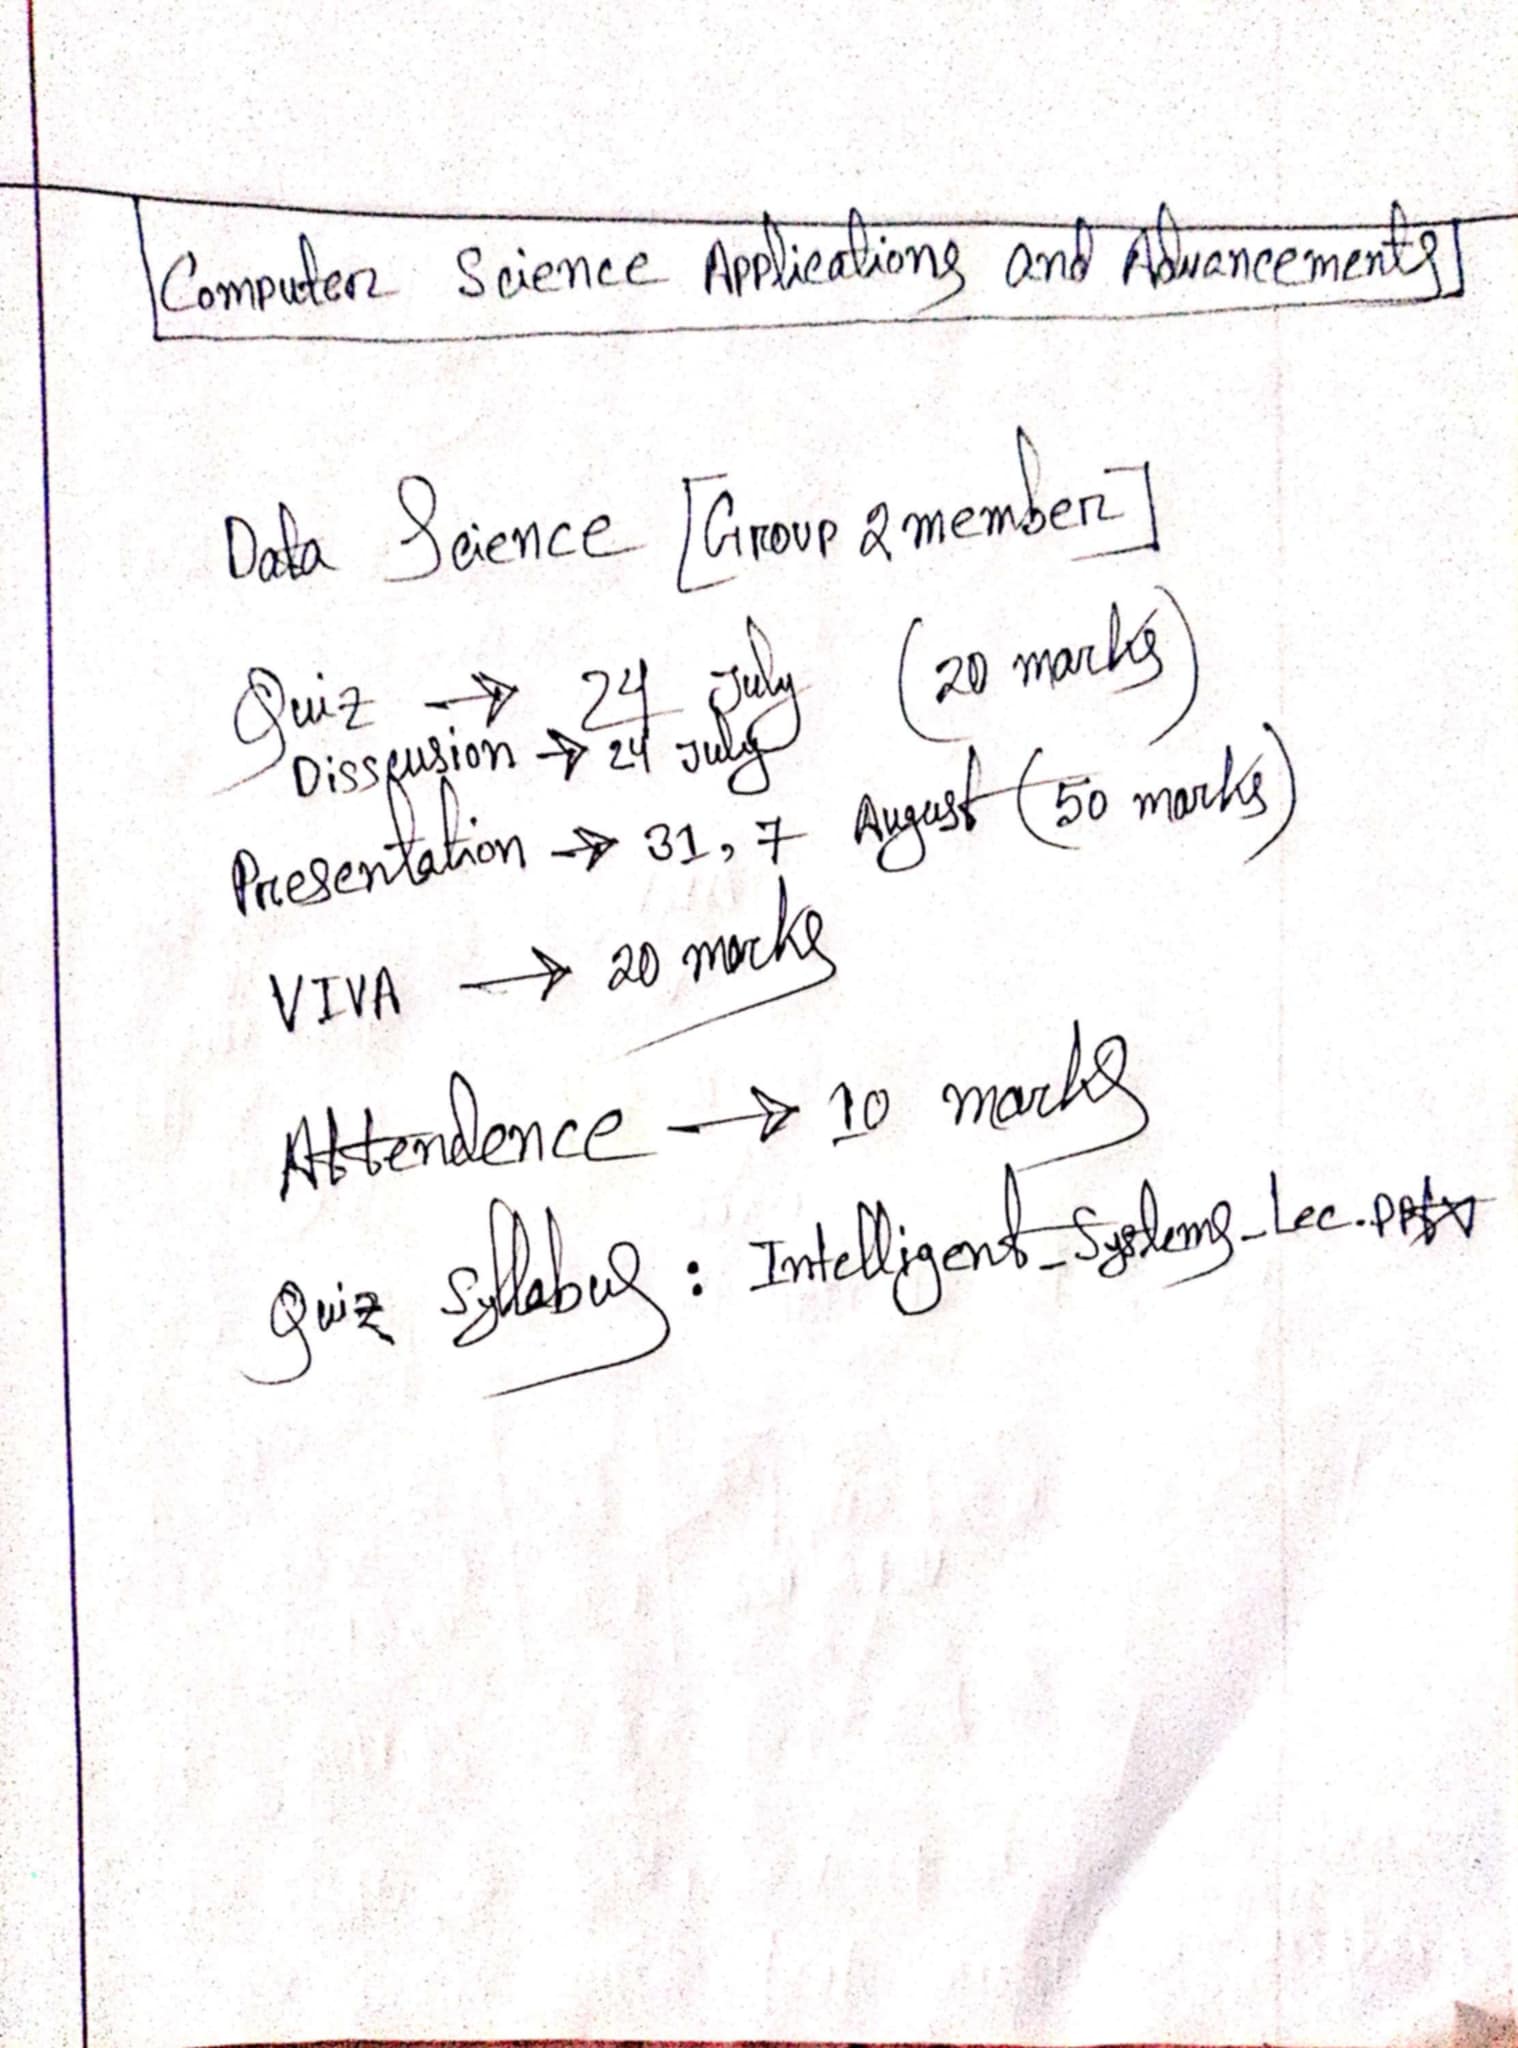 Computer Science Applications and Advancements
Data Science [Group 2 member]
Quiz → 24 July (20 marks)
Disscusion → 24 July
Presentation → 31, 7 August (50 marks)
VIVA → 20 marks
Attendence → 10 marks
Quiz Syllabus : Intelligent_Systems_Lec.pptx